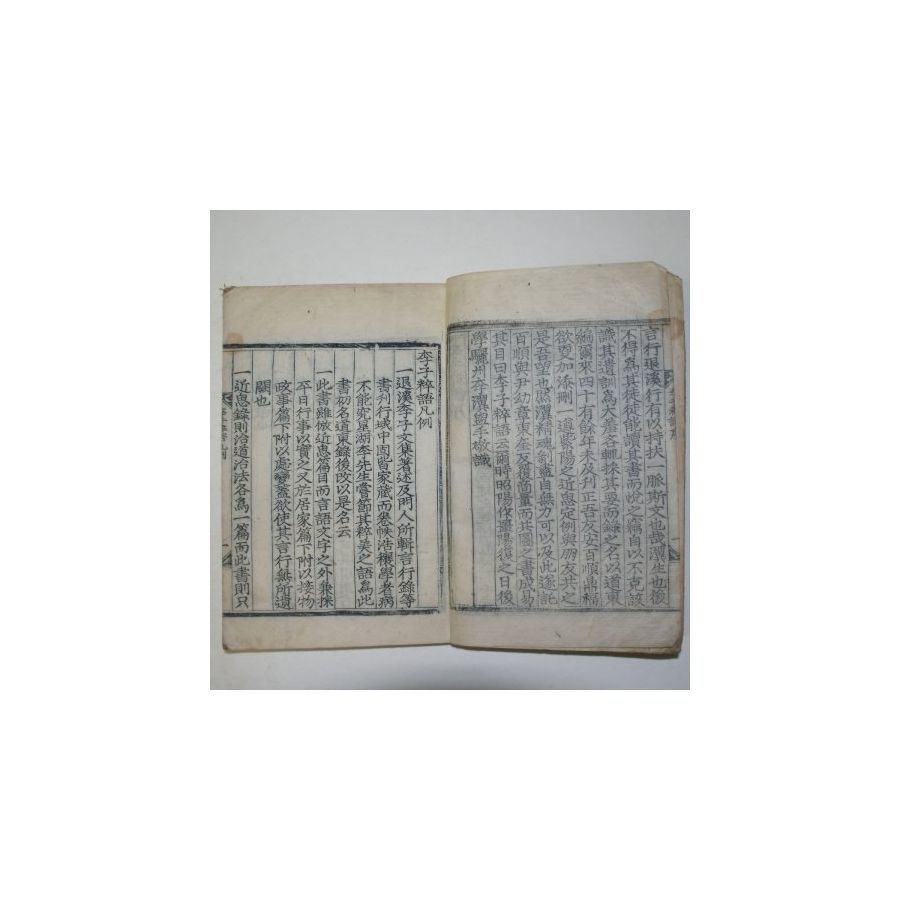 言行退溪行有以持扶一脈斯文也哉瀷生也後
不得爲其徒徒能讀其書而悅之竊自以不克該
識其遺訓爲大羞各輒採其要而錄之名以道東
編爾來四十有餘年未及刊正吾友安百順鼎福
欲更加添刪一遵紫陽之近思定例與朋友共之
是吾望也瀷精魂剝盡自無力可以及此遂託
百順與尹幼章東奎反復商量而共圖之書成易
其目曰李子粹語云爾時昭陽作噩陽復之日後
學驪州李瀷盥手敬識
李子粹語凡例
一退溪李子文集著述及門人所輯言行錄等
書刋行域中固皆家藏而卷帙浩穰學者病
不能究星湖李先生嘗節其粹美之語爲此
書初名道東錄後改以是名云
一此書雖倣近思篇目而言語文字之外兼採
平日行事以實之又於居家篇下附以接物
政事篇下附以處變蓋欲使其言行無所遺
闕也
一近思錄則治道治法各爲一篇而此書則只